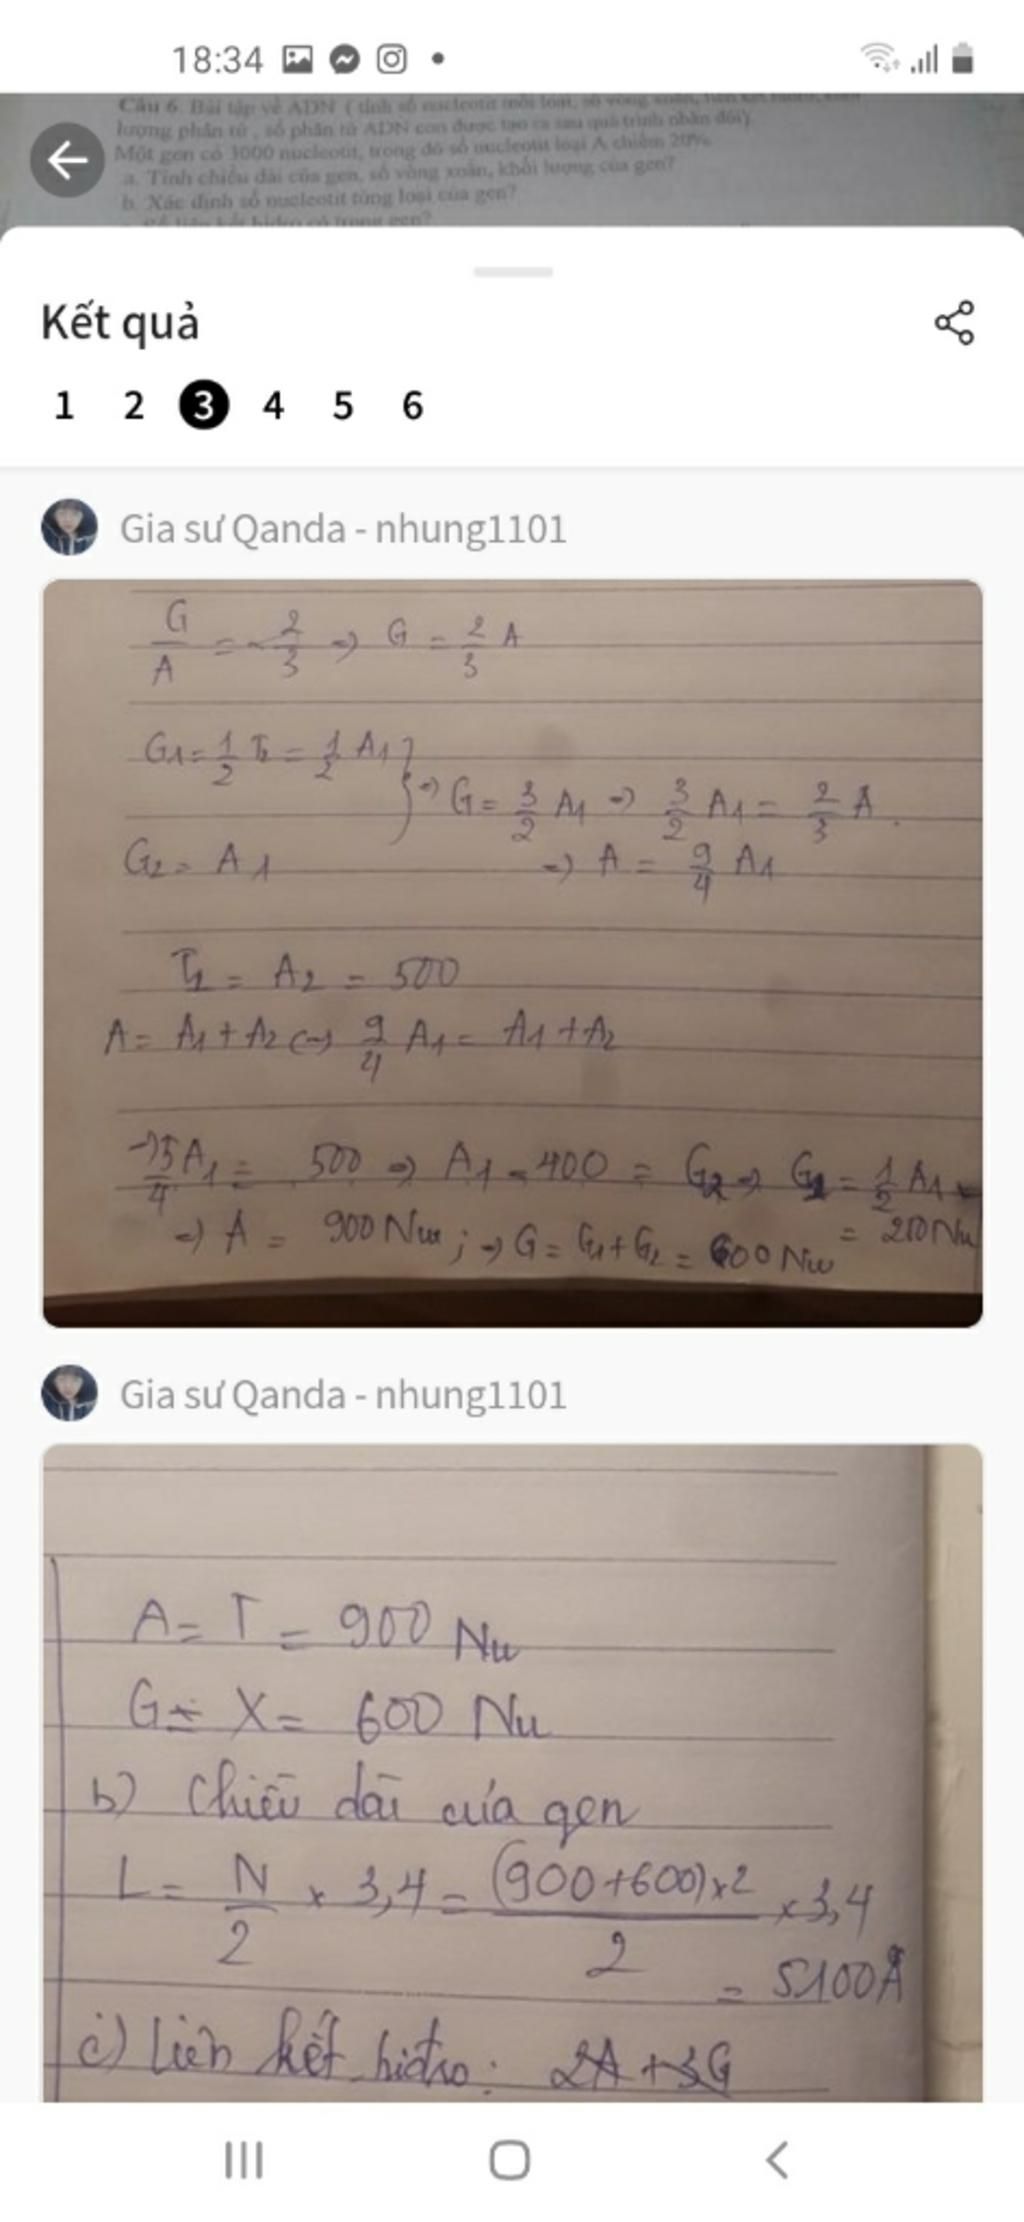 18:34
Câu 6. Bài tập về ADN ( tính số nucleotit mỗi loại, số vòng xoắn,
lượng phân tử , số phân tử ADN con được tạo ra sau quá trình nhân đôi).
Một gen có 3000 nucleotit, trong đó số nucleotit loại A chiếm 20%.
a. Tính chiều dài của gen, số vòng xoắn, khối lượng của gen?
b. Xác định số nucleotit từng loại của gen?
Kết quả
1 2 3 4 5 6
Gia sư Qanda - nhung1101
G/A = 2/3 => G = 2/3 A
G1 = 1/2 T2 = 1/2 A1 } => G = 3/2 A1 => 3/2 A1 = 2/3 A.
G2 = A1 => A = 9/4 A1
T1 = A2 = 500
A = A1 + A2 <=> 9/4 A1 = A1 + A2
=> 5/4 A1 = 500 => A1 = 400 = G2 => G1 = 1/2 A1 = 200 Nu
=> A = 900 Nu ; => G = G1 + G2 = 600 Nu
Gia sư Qanda - nhung1101
A = T = 900 Nu
G = X = 600 Nu
b) Chiều dài của gen
L = N/2 x 3,4 = (900+600)x2/2 x 3,4
= 5100Å
c) Liên kết hidro: 2A + 3G